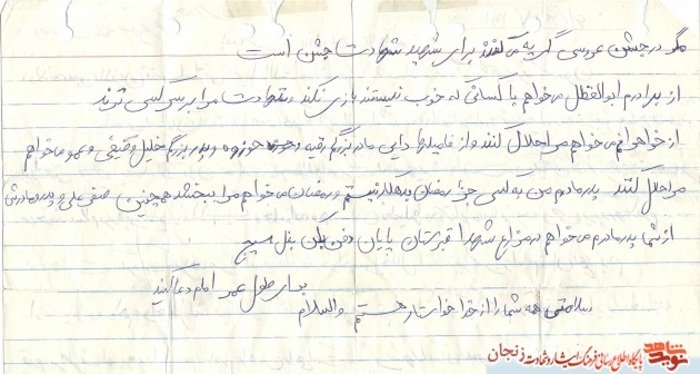 مگر در جشن عروسی گریه می‌کنند برای شهید شهادت جشن است
از برادرم ابوالفظل می‌خواهم با کسانی که خوب نیستند بازی نکند و شهادت مرا بر سر کسی نزند
از خواهرانم می‌خواهم مرا حلال کنند و از فامیلها دایی مادر بزرگم رقیه و حوزه و پدر بزرگم خلیل و تقی و عمو می‌خواهم
مرا حلال کنند پدر مادرم من به کسی جز رمضان بدهکار نیستم و رمضان می‌خواهم مرا ببخشد همچنین صفر علی و پدر و مادرش
از شما پدر مادرم می‌خواهم در مزار شهدا قبرستان پایان دفن بکن بغل
برای طول عمر امام دعا کنید
سلامتی همه شما را از خدا خواستار هستم والسلام
نوید شاهد
پایگاه اطلاع رسانی فرهنگ ایثار و شهادت زنجان